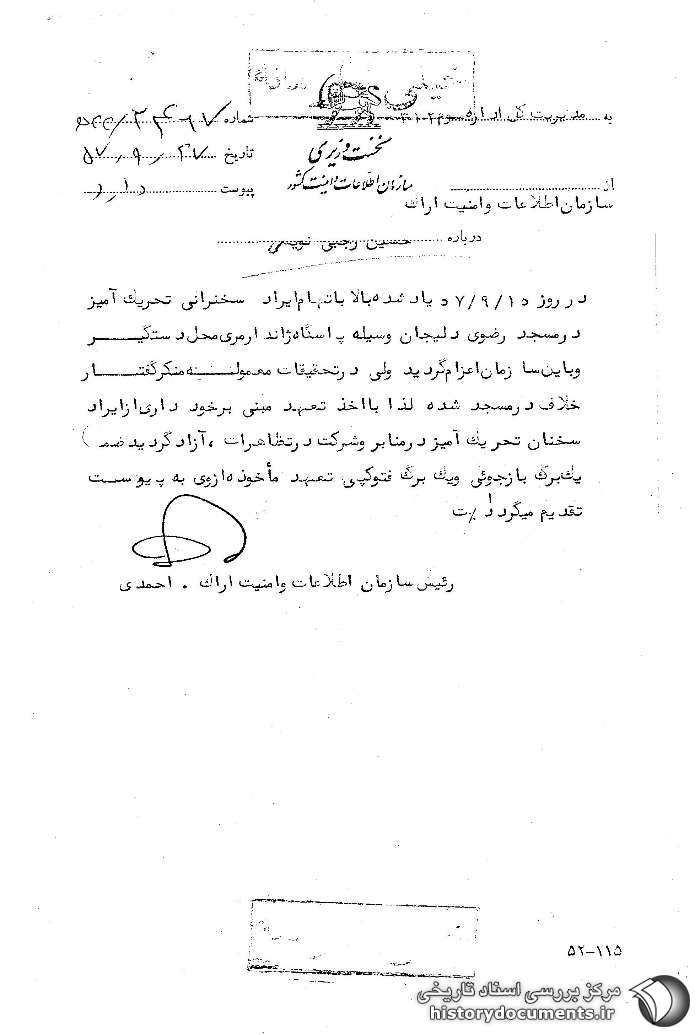 خیلی
به مدیریت کل اداره سوم ۳۰۲
شماره
نخست وزیری
تاریخ ۵۷٫۹٫۲۷
سازمان اطلاعات و امنیت کشور
پیوست دارد
از
سازمان اطلاعات وامنیت اراک
درباره حسین رجبی
در روز ۵۷/۹/۱۵ یاد شده بالا باتهام ایراد سخنرانی تحریک آمیز
درمسجد رضوی دلیجان وسیله پاسگاه ژاندارمری محل دستگیر
وباین سازمان اعزام گردید ولی درتحقیقات معموله منکر گفتار
خلاف درمسجد شده لذا بااخذ تعهد مبنی برخود داری ازایراد
سخنان تحریک آمیز درمنابر وشرکت درتظاهرات ، آزاد گردید ضمناً
یک برگ بازجوئی ویک برگ فتوکپی تعهد مأخوذه ازوی به پیوست
تقدیم میگردد
رئیس سازمان اطلاعات وامنیت اراک . احمدی
۵۲-۱۱۵
مرکز بررسی اسناد تاریخی
historydocuments.ir